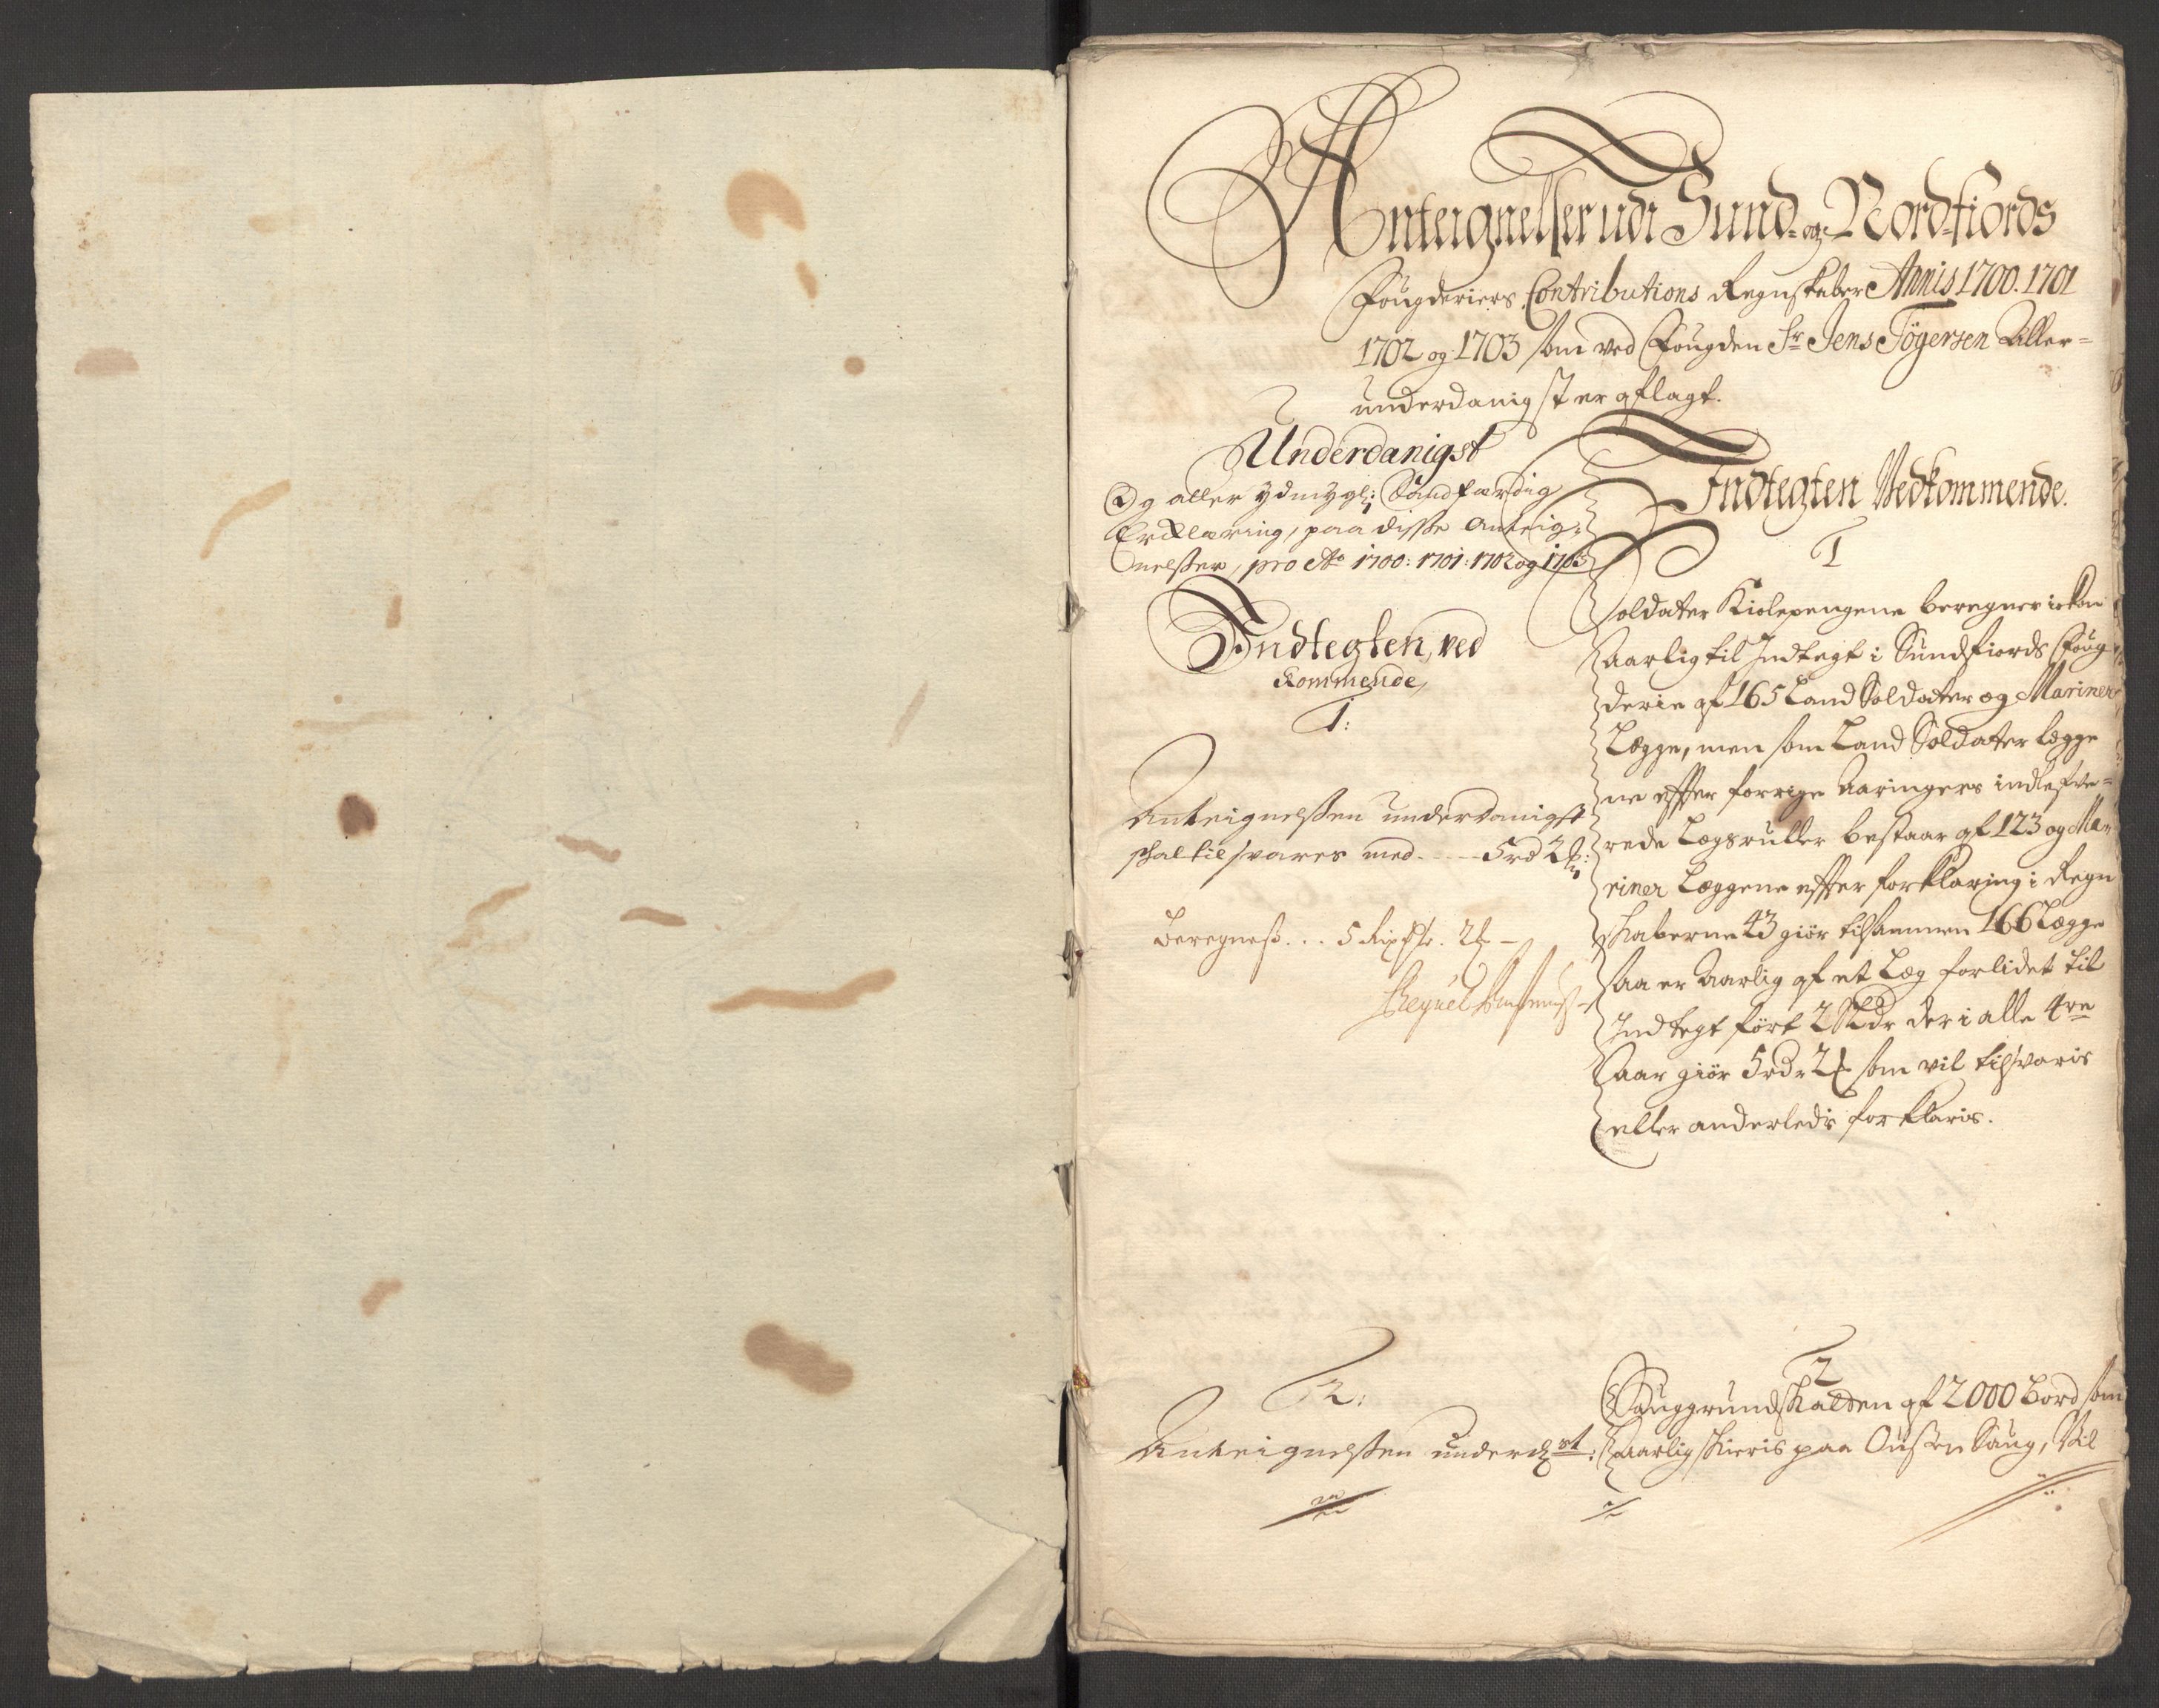 Anteignelser udi Sund- og Nordfiords
Fougderiers Contributions Regnskaber Annis 1700. 1701
1702 og 1703 som ved Fougden Sr Jens Tögersen Aller=
underdanigst er aflagt.
Underdanigst
Og aller ydmygl: Sandfærdig
Erklæring, paa disse Anteig=
nelsser, pro Ao 1700: 1701: 1702 og 1703
Indtegten, ved
kommende,
1:
Anteignelssen underdanigst
schal tilsvares med - - - 5 rd 2
Beregness . . . 5
2:
Anteignelssen underd st:
Indtegten Vedkommende.
1
Soldater Kiolepengene beregner
aarlig til Indtegt i Sundfiords Foug
derie af 165 Land Soldater og Mariner
Lægge, men som Land Soldater lægge
ne effter forrige Aaringers indlefve=
rede Lægsruller bestaar af 123 og Ma
riner Læggene effter forklaring i Regn
skaberne 43 giör tilsammen 166 Lægge
saa er Aarlig af et Læg forlidet til
Indtegt fört 2 Aldr der i alle 4re
Aar giör 5 rdr 2 som vil tilsvaris
eller anderledis forklaris.
2
Sauggrundskatten af 2000 Bord som
aarlig skieris paa Oussen Saug, Vil